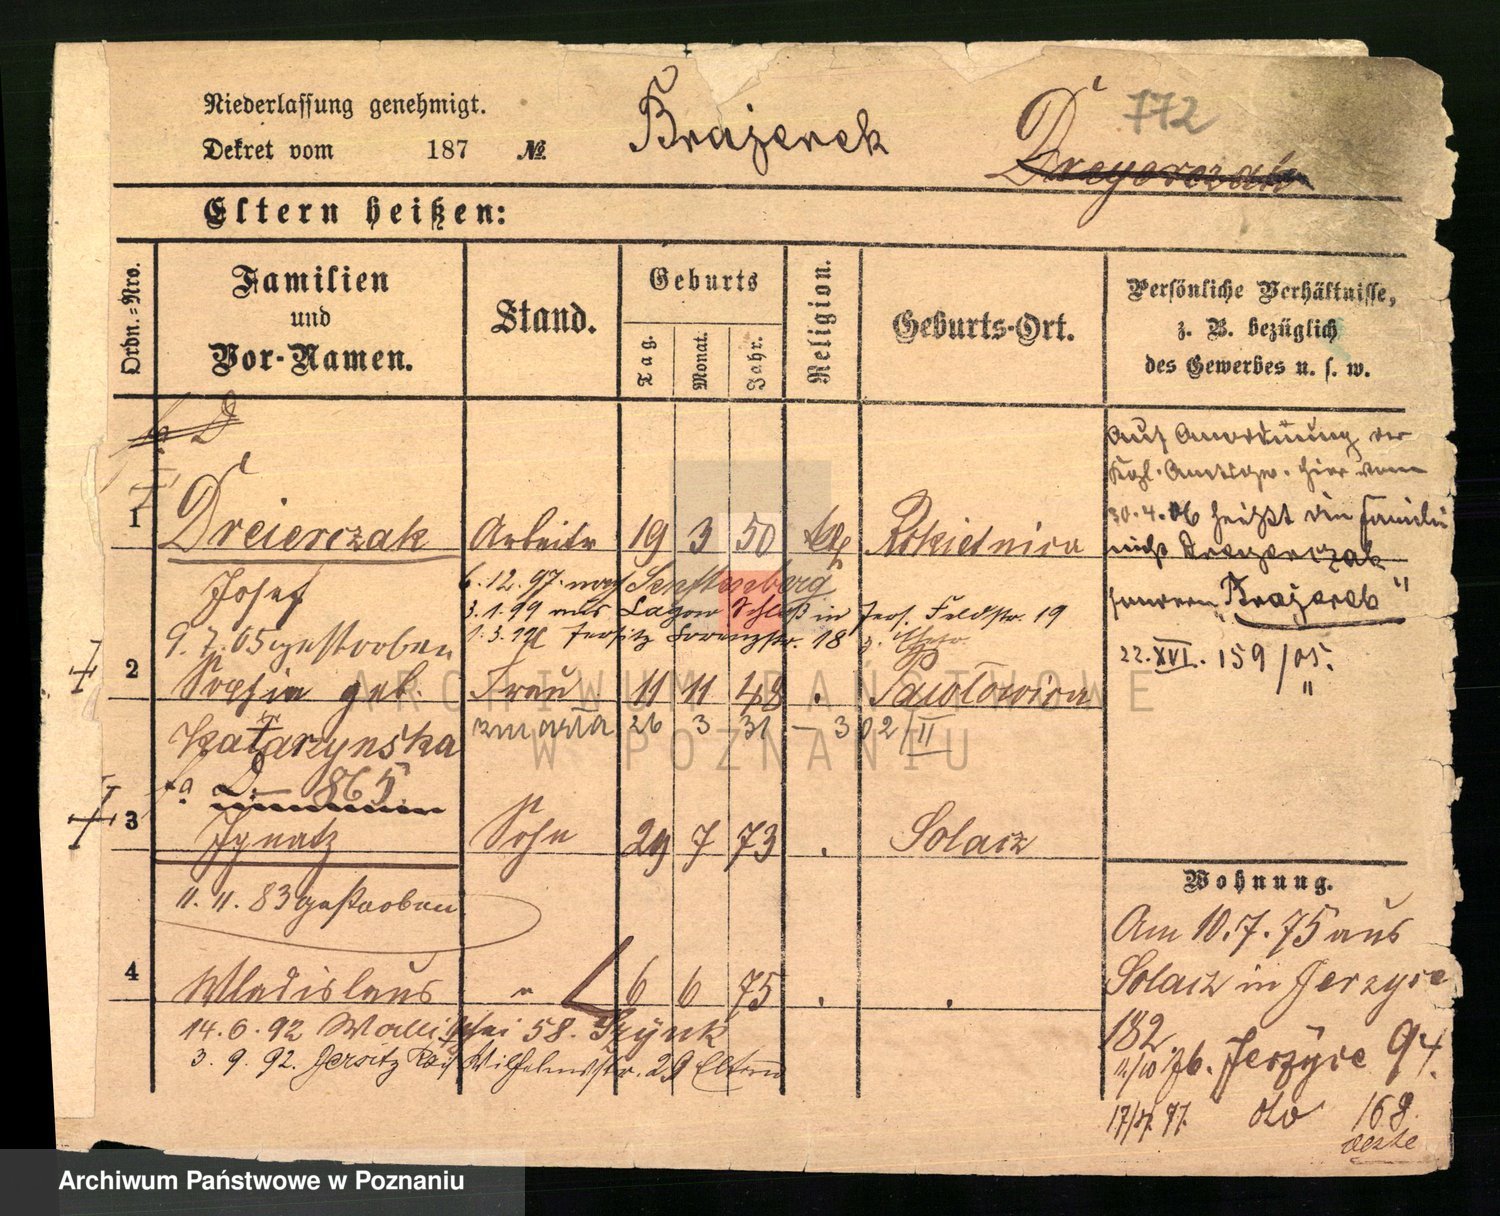 Niederlassung genehmigt.
Dekret vom 187 №
Brajerek
772
Dreyerczak
Eltern heißen:
Ordn.-Nro.
Familien
und
Vor-Namen.
Stand.
Geburts
Tag.
Monat.
Jahr.
Religion.
Geburts-Ort.
Persönliche Verhältnisse,
z. B. bezüglich
des Gewerbes u. s. w.
D
1 Dreierczak Arbeiter 19 3 50 Rokietnica
Josef
6.12.97. nach Senftenberg
3.1.99 aus Lagow Schloß in Jers. Feldstr. 19
Jersitz Lorenzstr. 18
9.7.05 gestorben
2 Sophia geb. Frau 11 11 48 . Pawlowica
Katarzynska zmarła 26 3 31 – 302/II
D – 865
3 Ignatz Sohn 29 7 73 . Solacz
11.11.83 gestorben
4 Wladislaus " 6 6 75 . .
14.6.92 Wallischei 58.
3.9.92. Jersitz Wilhelmstr. 29 Eltern
Auf Anordnung der
Kgl. hier vom
30.4.06 heißt die Familie
nicht Dreyerczak
sondern „Brajerek"
22.XVI. 159/05.
"
Wohnung.
Am 10.7.75 aus
Solacz in Jerzyce
182
11/10 76. Jerzyce 94.
do 168.